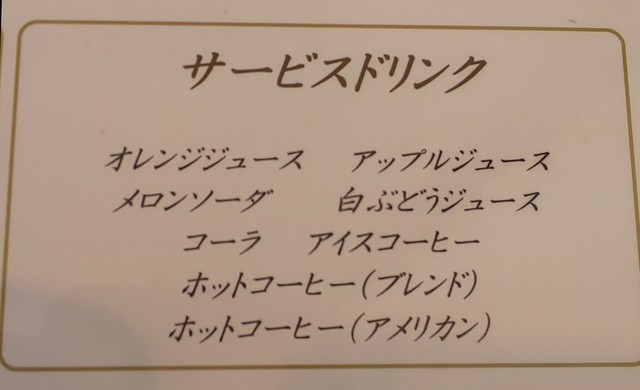 サービスドリンク
オレンジジュース　アップルジュース
メロンソーダ　白ぶどうジュース
コーラ　アイスコーヒー
ホットコーヒー（ブレンド）
ホットコーヒー（アメリカン）